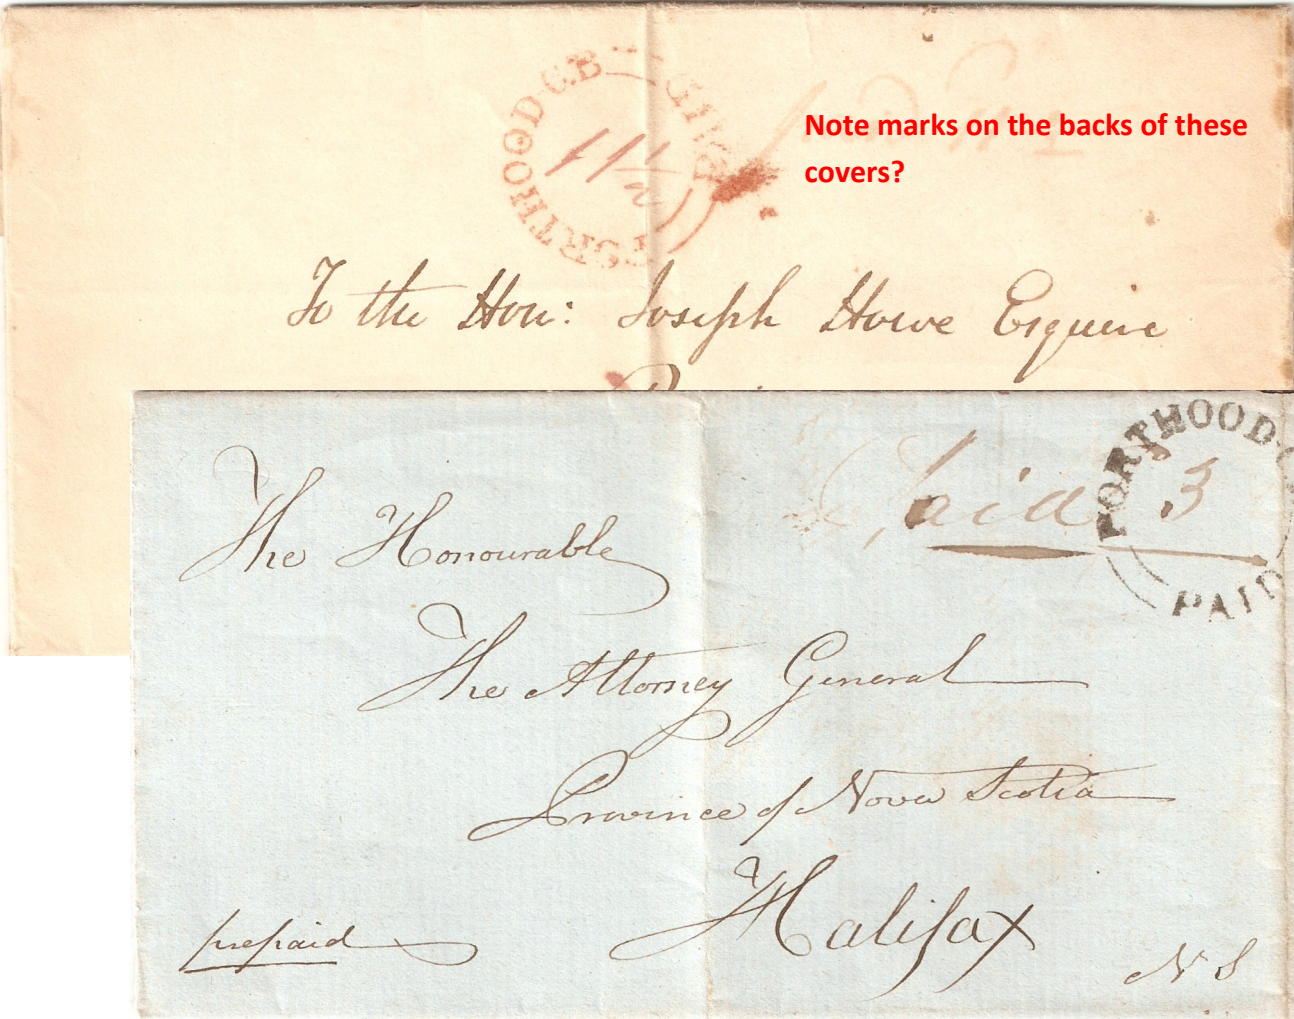 PORTHOOD C.B
11½
Note marks on the backs of these
covers?
To the Hon: Joseph Howe Esquire
PORTHOOD
Paid 3
PAID
The Honourable
The Attorney General
Province of Nova Scotia
Halifax
prepaid
N S